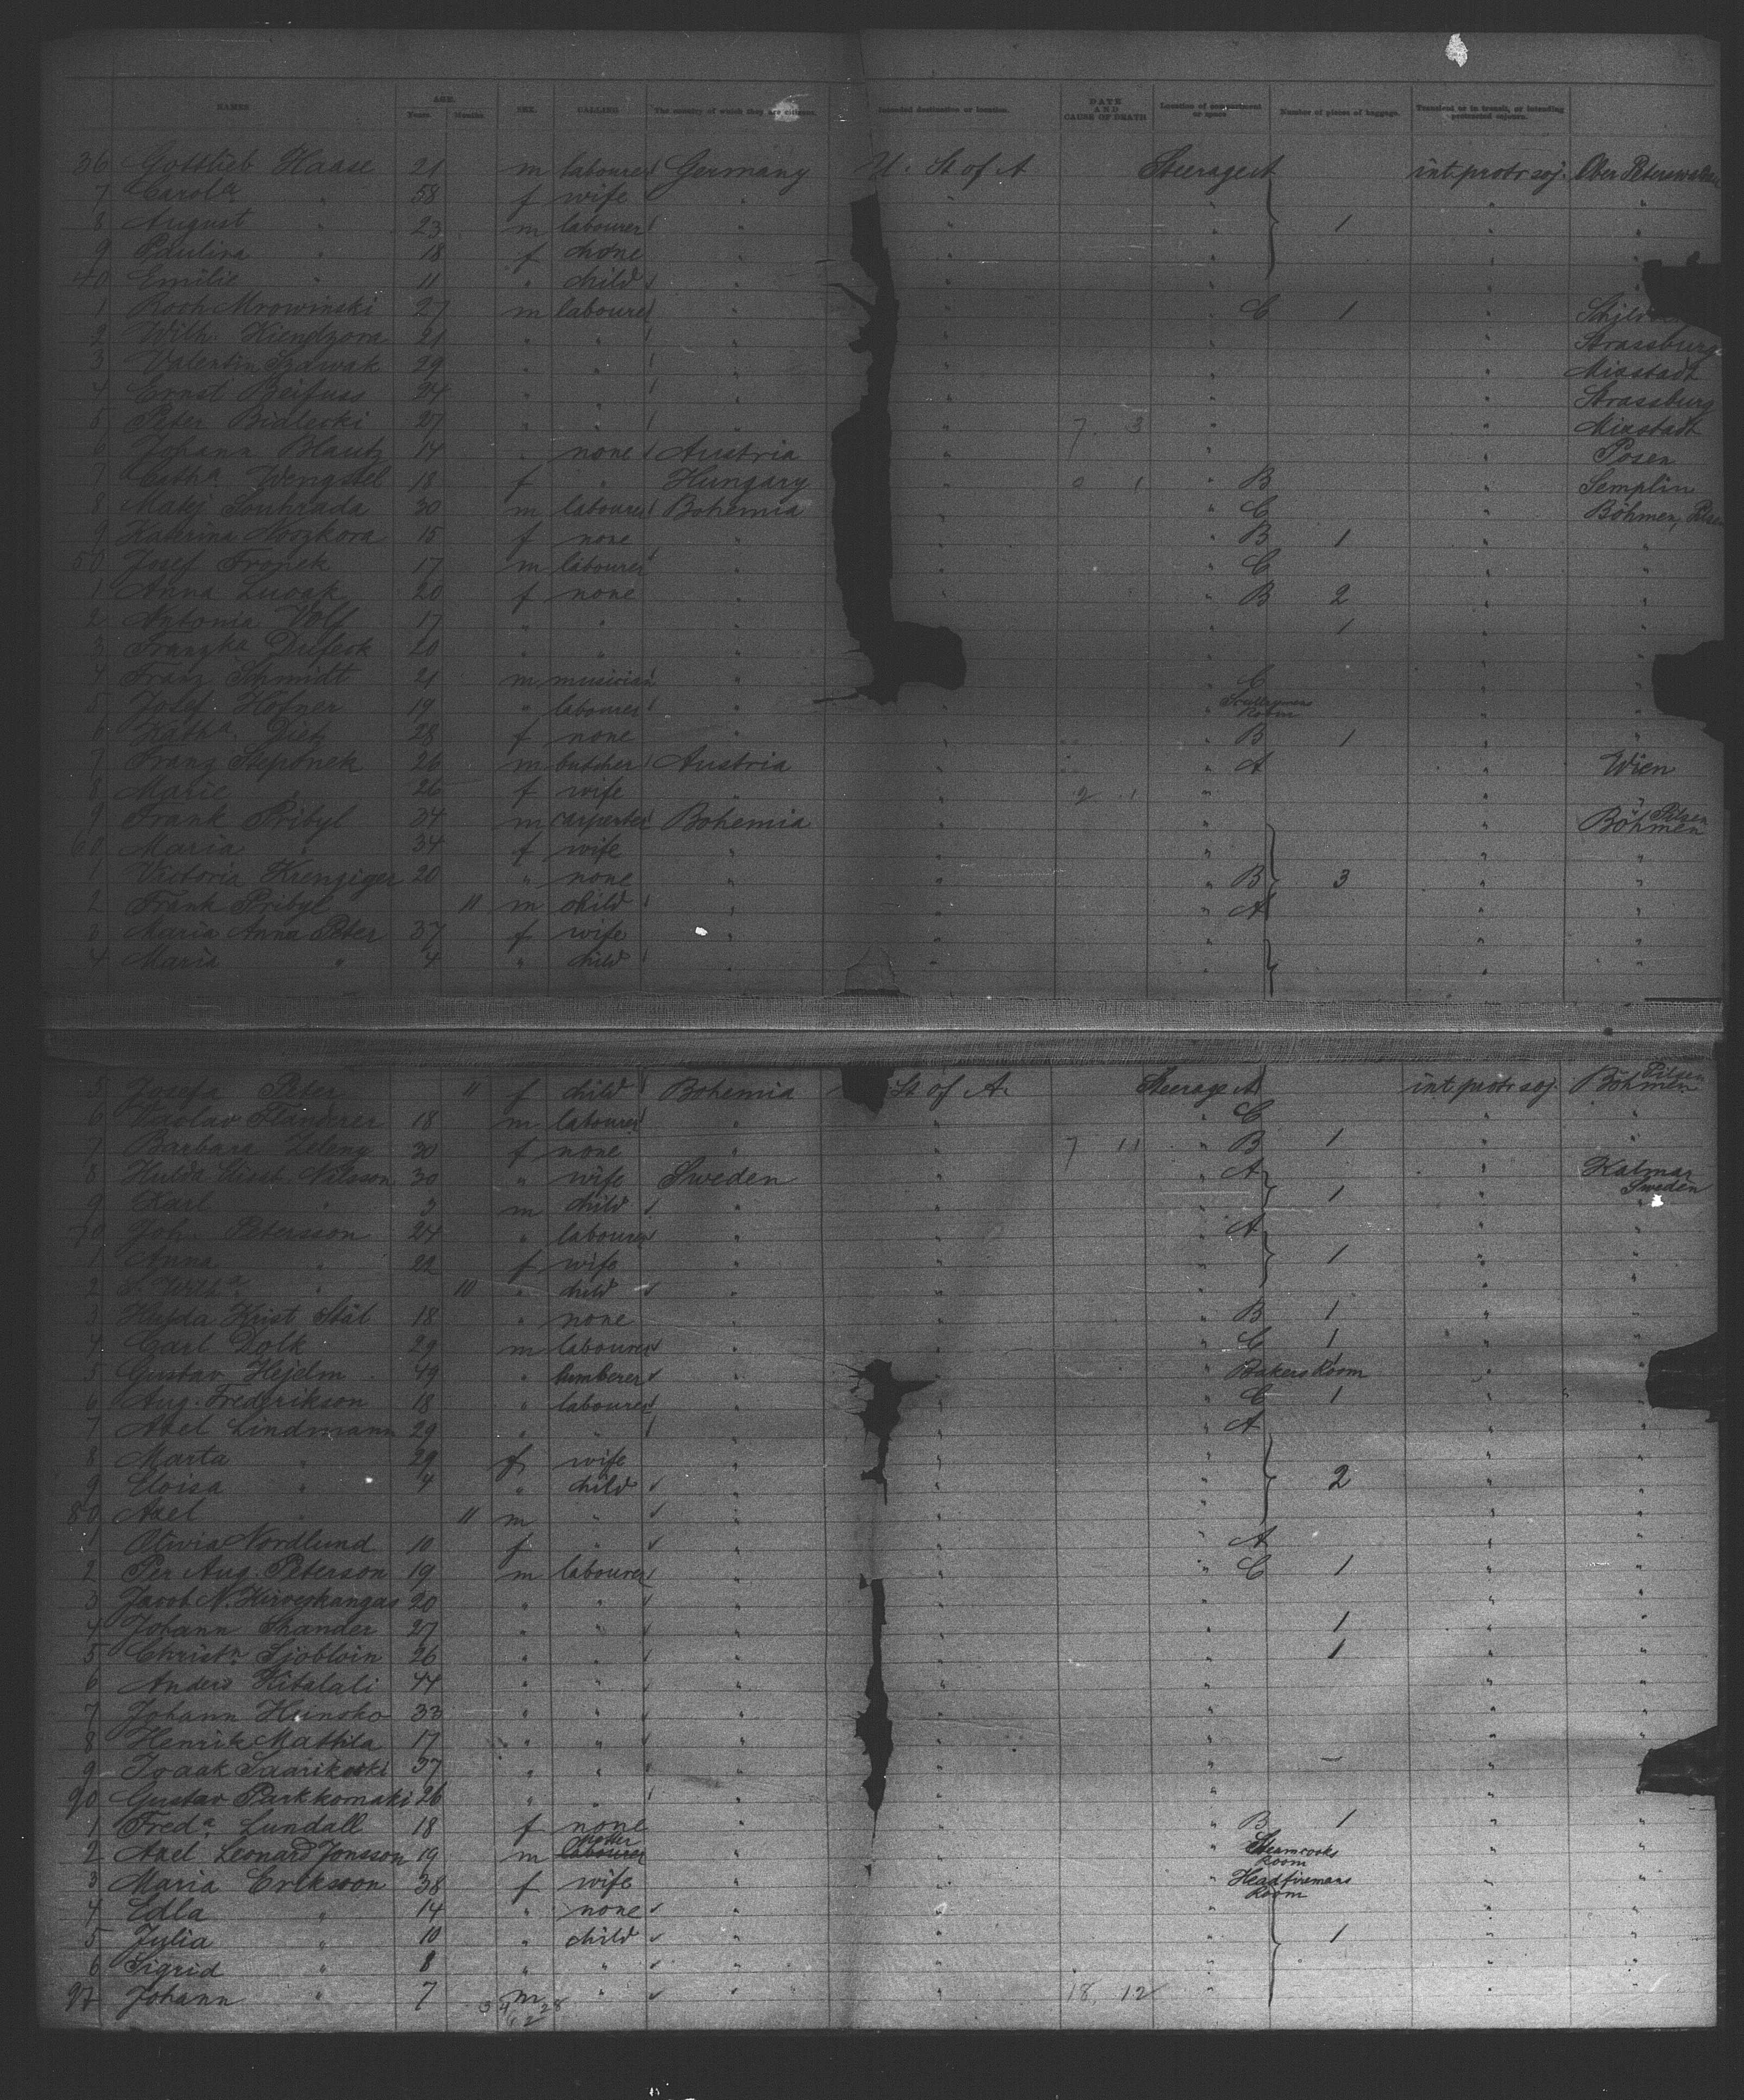 NAMES AGE. Years Months SEX. CALLING The country of which they are citizens. Intended destination or location. DATE AND CAUSE OF DEATH Location of compartment or space Number of pieces of baggage. Transient or in transit, or intending protracted sojourn.
36 Gottlieb Haase 21 m labourer Germany U. St of A Steerage A int. protr. soj.
7 Carola " 58 f wife " " " " "
8 August " 23 m labourer " " " 1 " "
9 Paulina " 18 f none " " " "
40 Emilie " 11 " child " " " "
1 Roch Mrowinski 27 m labourer " C 1 "
2 Wilh. Kiendzora 21 " " " " " " Strassburg
3 Valentin 29 " " " " " " Mixstadt
4 Ernst Beifuss 24 " " " " " " Strassburg
5 Peter Bialecki 27 " " " " 7 3 " " Mixstadt
6 Johann Blautz 14 " none Austria " " " Posen
7 Catha Wengstel 18 f " Hungary " 0 1 " B " Semplin
8 Matej Souhrada 30 m labourer Bohemia " " C " Böhmen, Pilsen
9 Katerina 15 f none " " " B 1 " "
50 Josef Fronek 17 m labourer " " " C " "
1 Anna 20 f none " " " B 2 " "
2 Antonia Volf 17 " " " " 1 " "
3 20 " " " " " "
4 Franz Schmidt 21 m musician " " C " "
5 Josef Höfner 19 " labourer " " " Room " "
6 Katha Dietz 28 f none " " " B 1 " "
7 Franz Steponek 26 m butcher Austria " " A " Wien
8 Marie " 26 f wife " " 2 1 " " "
9 Frank Pribyl 34 m carpenter Bohemia " " " Böhmen Pilsen
60 Maria " 34 f wife " " " " "
1 Victoria Krenziger 20 " none " " " B 3 " "
2 Frank Pribyl 11 m child " " " A " "
3 Maria Anna Peter 37 f wife " " " " "
4 Maria " 4 " child " " " " "
5 Josefa Peter 11 f child Bohemia St of A. Steerage A int. protr. soj. Böhmen Pilsen
6 18 m labourer " " " C " "
7 Barbara Zeleny 30 f none " " 7 11 " B 1 " "
8 Hulda Nilsson 30 " wife Sweden " " A " Kalmar Sweden
9 Karl " 3 m child " " " 1 " "
70 Joh. Petersson 24 " labourer " " " A " "
1 Anna " 22 f wife " " " 1 " "
2 " 10 " child " " " " "
3 Hulda Krist. Stål 18 " none " " " B 1 " "
4 Carl Dolk 29 m labourer " " " C 1 " "
5 Gustav Hejelm 49 " lumberer " " Bakers Room " "
6 Aug. Frederikson 18 " labourer " " " C 1 " "
7 Axel Lindmann 29 " " " " " A " "
8 Marta " 29 f wife " " " " "
9 Eloisa " 4 " child " " " 2 " "
80 Axel " 11 m " " " " " "
1 Olivia Nordlund 10 f " " " A " "
2 Per Aug. Peterson 19 m labourer " " " C 1 " "
3 Jacob N. Kirveskangas 20 " " " " " " "
4 Johann Shander 27 " " " " " 1 " "
5 Christn Sjobloin 26 " " " " " 1 " "
6 Anders Kitalali 44 " " " " " " "
7 Johann Heinsko 33 " " " " " " "
8 Henrik Mattila 17 " " " " " " "
9 Isaak Saarikoski 37 " " " " " — "
90 Gustav Parkkomaki 26 " " " " " " "
1 Freda Lundall 18 f none " " " B 1 " "
2 Axel Leonard Jonsson 19 m labourer " " " Steamcooks Room " "
3 Maria Erikson 38 f wife " " " Headfiremans Room " "
4 Edla " 14 " none " " " " "
5 Julia " 10 " child " " " 1 " "
6 Sigrid " 8 " " " " " " "
97 Johann " 7 m " " " 18 12 " " "